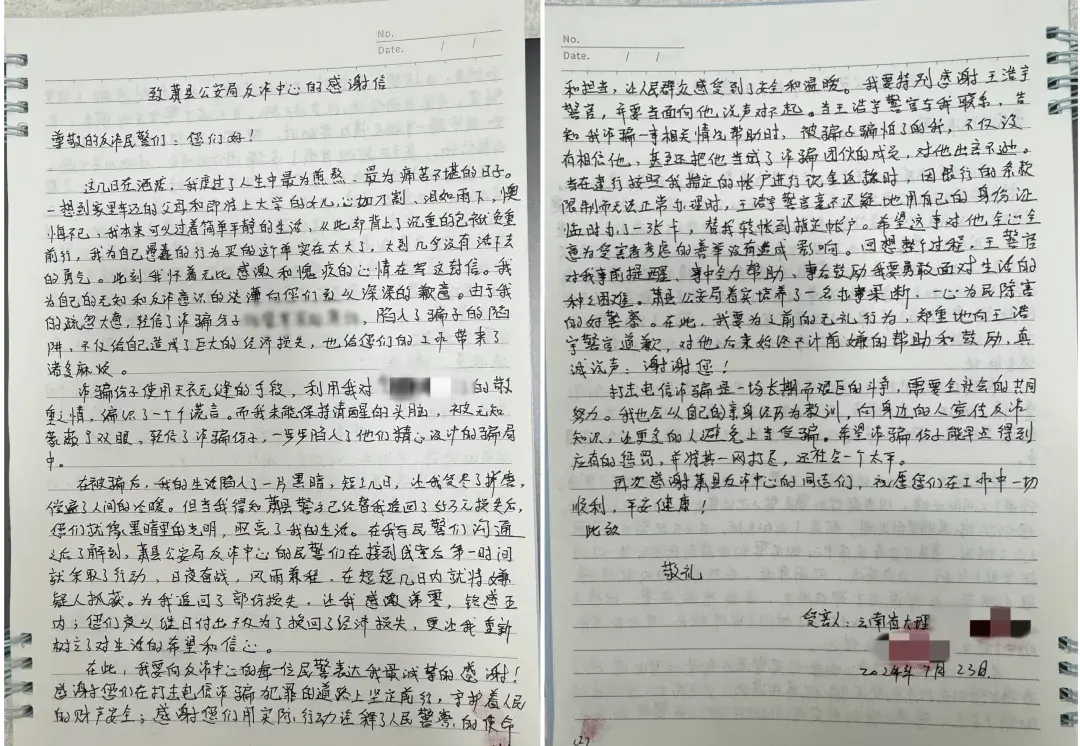 No.
Date. / /
致萧县公安局反诈中心的感谢信
尊敬的反诈民警们：您们好！
这几日在酒店，我度过了人生中最为煎熬、最为痛苦不堪的日子。
一想到家里年迈的父母和即将上大学的女儿，心如刀割、泪如雨下，懊
悔不已，我本来可以过着简单平静的生活，从此却背上了沉重的包袱负重
前行，我为自己愚蠢的行为买的这个单实在太大了，大到几乎没有活下去
的勇气。此刻我怀着无比感激和愧疚的心情在写这封信。我
为自己的无知和反诈意识的淡薄向您们致以深深的歉意。由于我
的疏忽大意，轻信了诈骗分子，陷入了骗子的陷
阱，不仅给自己造成了巨大的经济损失，也给您们的工作带来了
诸多麻烦。
诈骗份子使用天衣无缝的手段，利用我对的敬
重之情，编织了一个个谎言。而我未能保持清醒的头脑，被无知
蒙蔽了双眼。轻信了诈骗份子，一步步陷入了他们精心设计的骗局
中。
在被骗后，我的生活陷入了一片黑暗，短短几日，让我受尽了折磨，
偿遍了人间的冷暖。但当我得知萧县警方已经替我追回了55万元损失后，
您们就像黑暗里的光明，照亮了我的生活。在我与民警们沟通
之后了解到，萧县公安局反诈中心的民警们在接到线索后第一时间
就采取了行动，日夜奋战，风雨兼程，在短短几日内就将嫌
疑人抓获。为我追回了部份损失，让我感激涕零，铭感五
内；您们夜以继日付出不仅为了挽回了经济损失，更让我重新
树立了对生活的希望和信心。
在此，我要向反诈中心的每一位民警表达我最诚挚的感谢！
感谢您们在打击电信诈骗犯罪的道路上坚定前行，守护着人民
的财产安全；感谢您们用实际行动诠释了人民警察的使命
No.
Date. / /
和担当，让人民群众感受到了安全和温暖。我要特别感谢王浩宇
警官，并要当面向他说声对不起。当王浩宇警官与我联系，告
知我诈骗一事相关情况帮助时，被骗子骗怕了的我，不仅没
有相信他，甚至还把他当成了诈骗团伙的成员，对他出言不逊。
当在建行按照我指定的帐户进行资金返还时，因银行的条款
限制而无法正常办理时，王浩宇警官毫不迟疑地用自己的身份证
临时办了一张卡，替我转帐到指定帐户。希望这事对他全心全
意为受害者考虑的善举没有造成影响。回想整个过程，王警官
对我事前提醒、事中全力帮助、事后鼓励我要勇敢面对生活的
种种困难。萧县公安局着实培养了一名办事果断、一心为民除害
的好警察。在此，我要为之前的无礼行为，郑重地向王浩
宇警官道歉，对他后来始终不计前嫌的帮助和鼓励，真
诚说声：谢谢您！
打击电信诈骗是一场长期而艰巨的斗争，需要全社会的共同
努力。我也会以自己的亲身经历为教训，向身边的人宣传反诈
知识，让更多的人避免上当受骗。希望诈骗份子能早点得到
应有的惩罚，并将其一网打尽，还社会一个太平。
再次感谢萧县反诈中心的同志们，祝愿您们在工作中一切
顺利，平安健康！
此致
敬礼
受害人：云南省大理
2024年7月23日
(2)